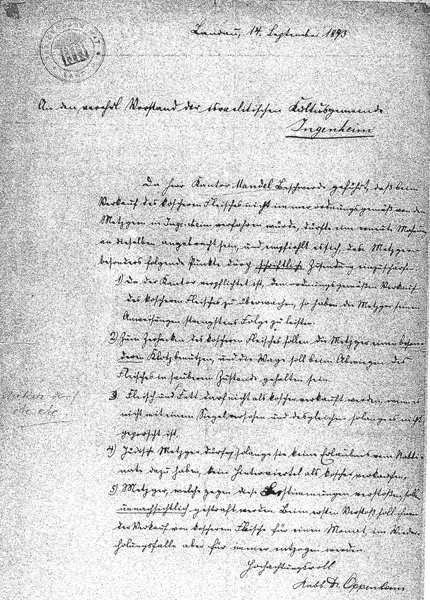 Landau, 14. September 1893
An den verehrl. Vorstand der israelitischen Kultusgemeinde
Ingenheim
Da Herr Kantor Mandel Beschwerde geführt, daß beim
Verkauf des koscheren Fleisches nicht immer ordnungsgemäß von den
Metzgern in Ingenheim verfahren würde, dürfte eine erneute Mahnung
an dieselben angebracht sein, und empfiehlt es sich, den Metzgern
besonders folgende Punkte durch schriftliche Zusendung einzuschärfen:
1) Da der Kantor verpflichtet ist, den ordnungsgemäßen Verkauf
des koscheren Fleisches zu überwachen, so haben die Metzger seinen
Anweisungen strengstens Folge zu leisten.
2) Zum Zerhacken des koscheren Fleisches sollen die Metzger einen beson-
deren Klotz benützen, und die Wage soll beim Abwiegen des
Fleisches in sauberem Zustande gehalten sein.
3) Fleisch und Fett darf nicht als koscher verkauft werden, wenn es
nicht mit einem Siegel versehen und desgleichen solange es nicht
geporscht ist.
4) Jüdische Metzger dürfen, solange sie keine Erlaubnis vom Rabbi-
nate dazu haben, kein Hinterviertel als koscher verkaufen.
5) Metzger, welche gegen diese Bestimmungen verstoßen, sollen
unnachsichtlich gestraft werden. Beim ersten Verstoß soll ihnen
der Verkauf von koscherem Fleische für einen Monat, im Wieder-
holungsfalle aber für immer entzogen werden.
Hochachtungsvoll
Rabb. Dr. Oppenheim